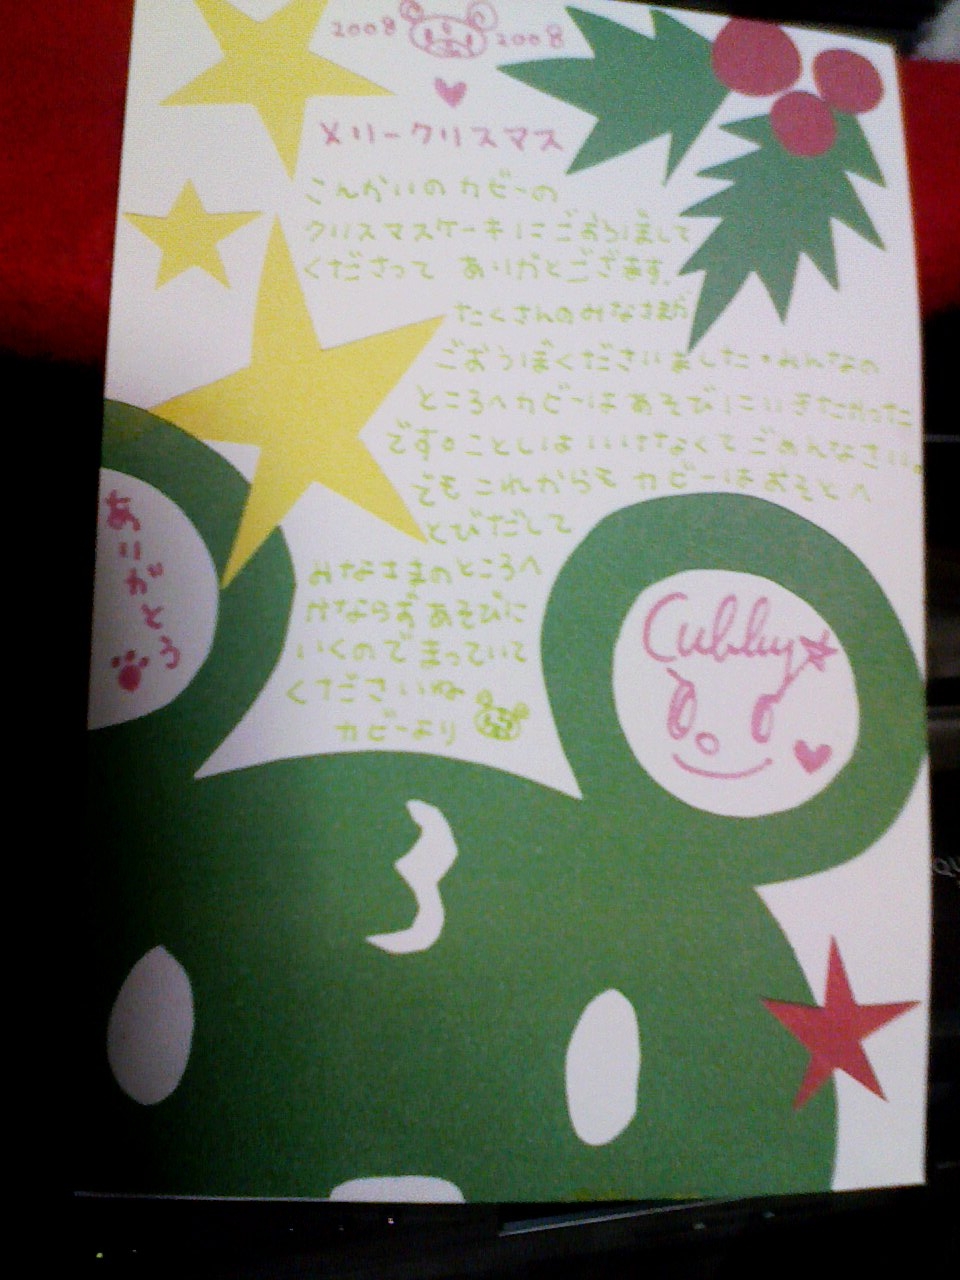 2008 2008
メリークリスマス
こんかいのカビーの
クリスマスケーキにごおうぼして
くださって ありがとござます。
たくさんのみなさまが
ごおうぼくださいました。みんなの
ところへカビーはあそびにいきたかった
です。ことしはいけなくてごめんなさい。
でもこれからもカビーはおそとへ
とびだして
みなさまのところへ
かならずあそびに
いくのでまっていて
くださいね
カビーより
ありがとう
Cubby